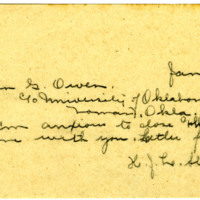 Jan
n G. Owen,
c/o University of Oklahom
Norman, Okla
Am anxious to close
m with you. Letter f
H. J. L.